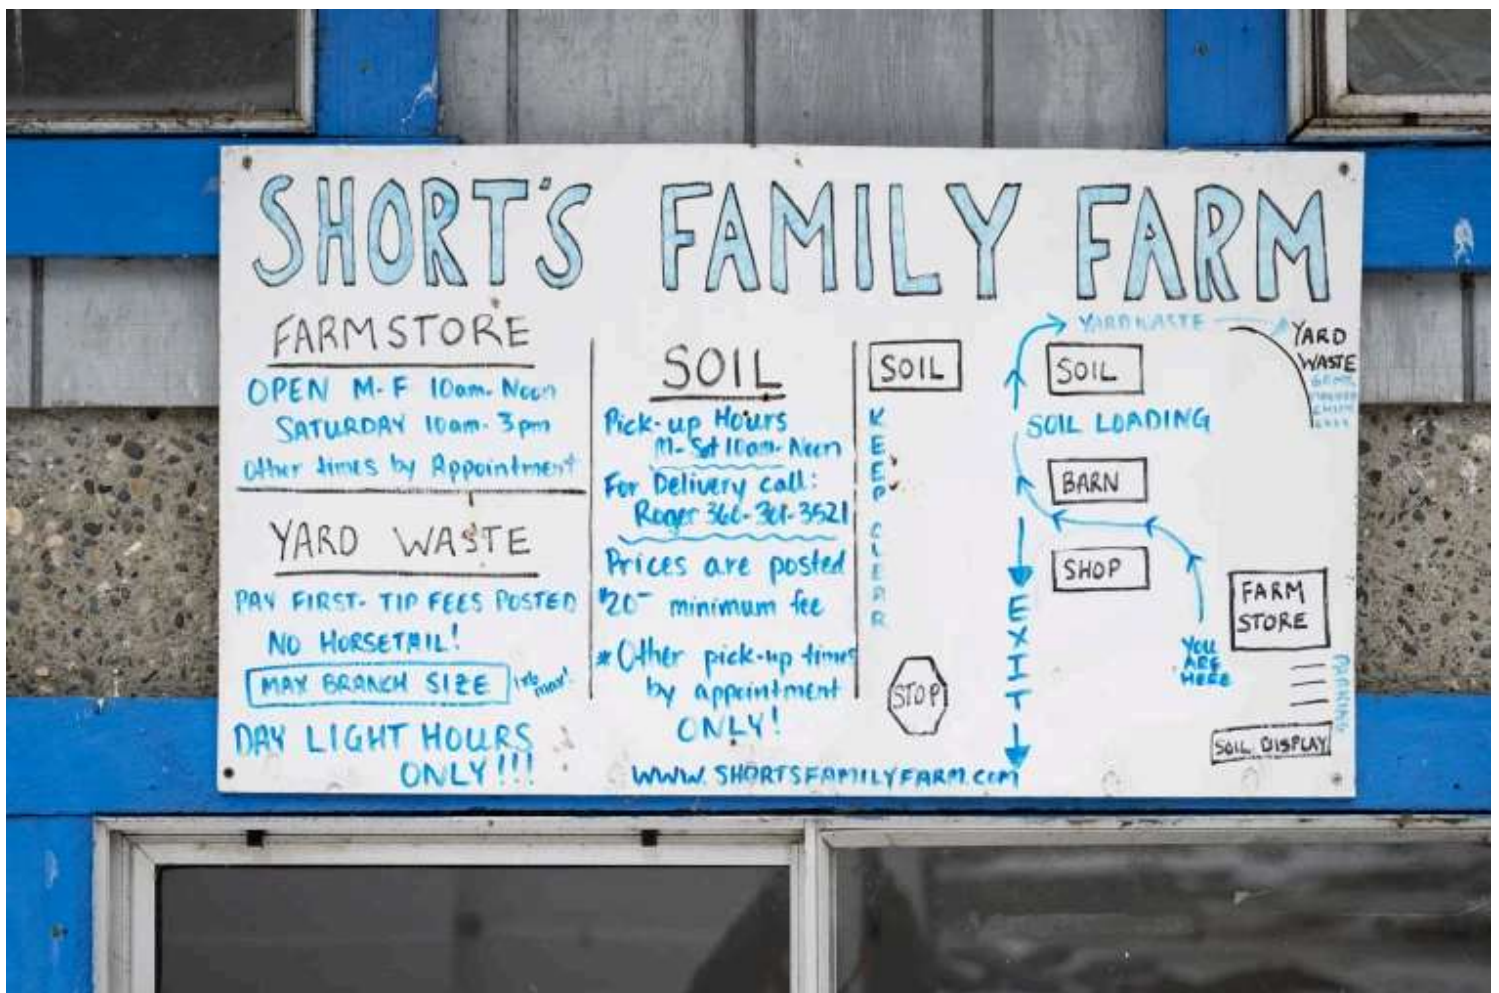 SHORT'S FAMILY FARM
FARMSTORE
OPEN M-F 10am-Noon
SATURDAY 10am-3pm
Other times by Appointment
YARD WASTE
PAY FIRST-TIP FEES POSTED
NO HORSETAIL!
MAX BRANCH SIZE
max!
DAY LIGHT HOURS
ONLY!!!
SOIL
Pick-up Hours
M-Sat 10am-Noon
For Delivery call:
Roger 360-301-3521
Prices are posted
$20- minimum fee
*Other pick-up times
by appointment
ONLY!
WWW.SHORTSFAMILYFARM.COM
SOIL
KEEP
CLEAR
STOP
YARD WASTE
YARD
WASTE
SOIL
SOIL LOADING
BARN
SHOP
EXIT
FARM
STORE
YOU
ARE
HERE
PARKING
SOIL DISPLAY